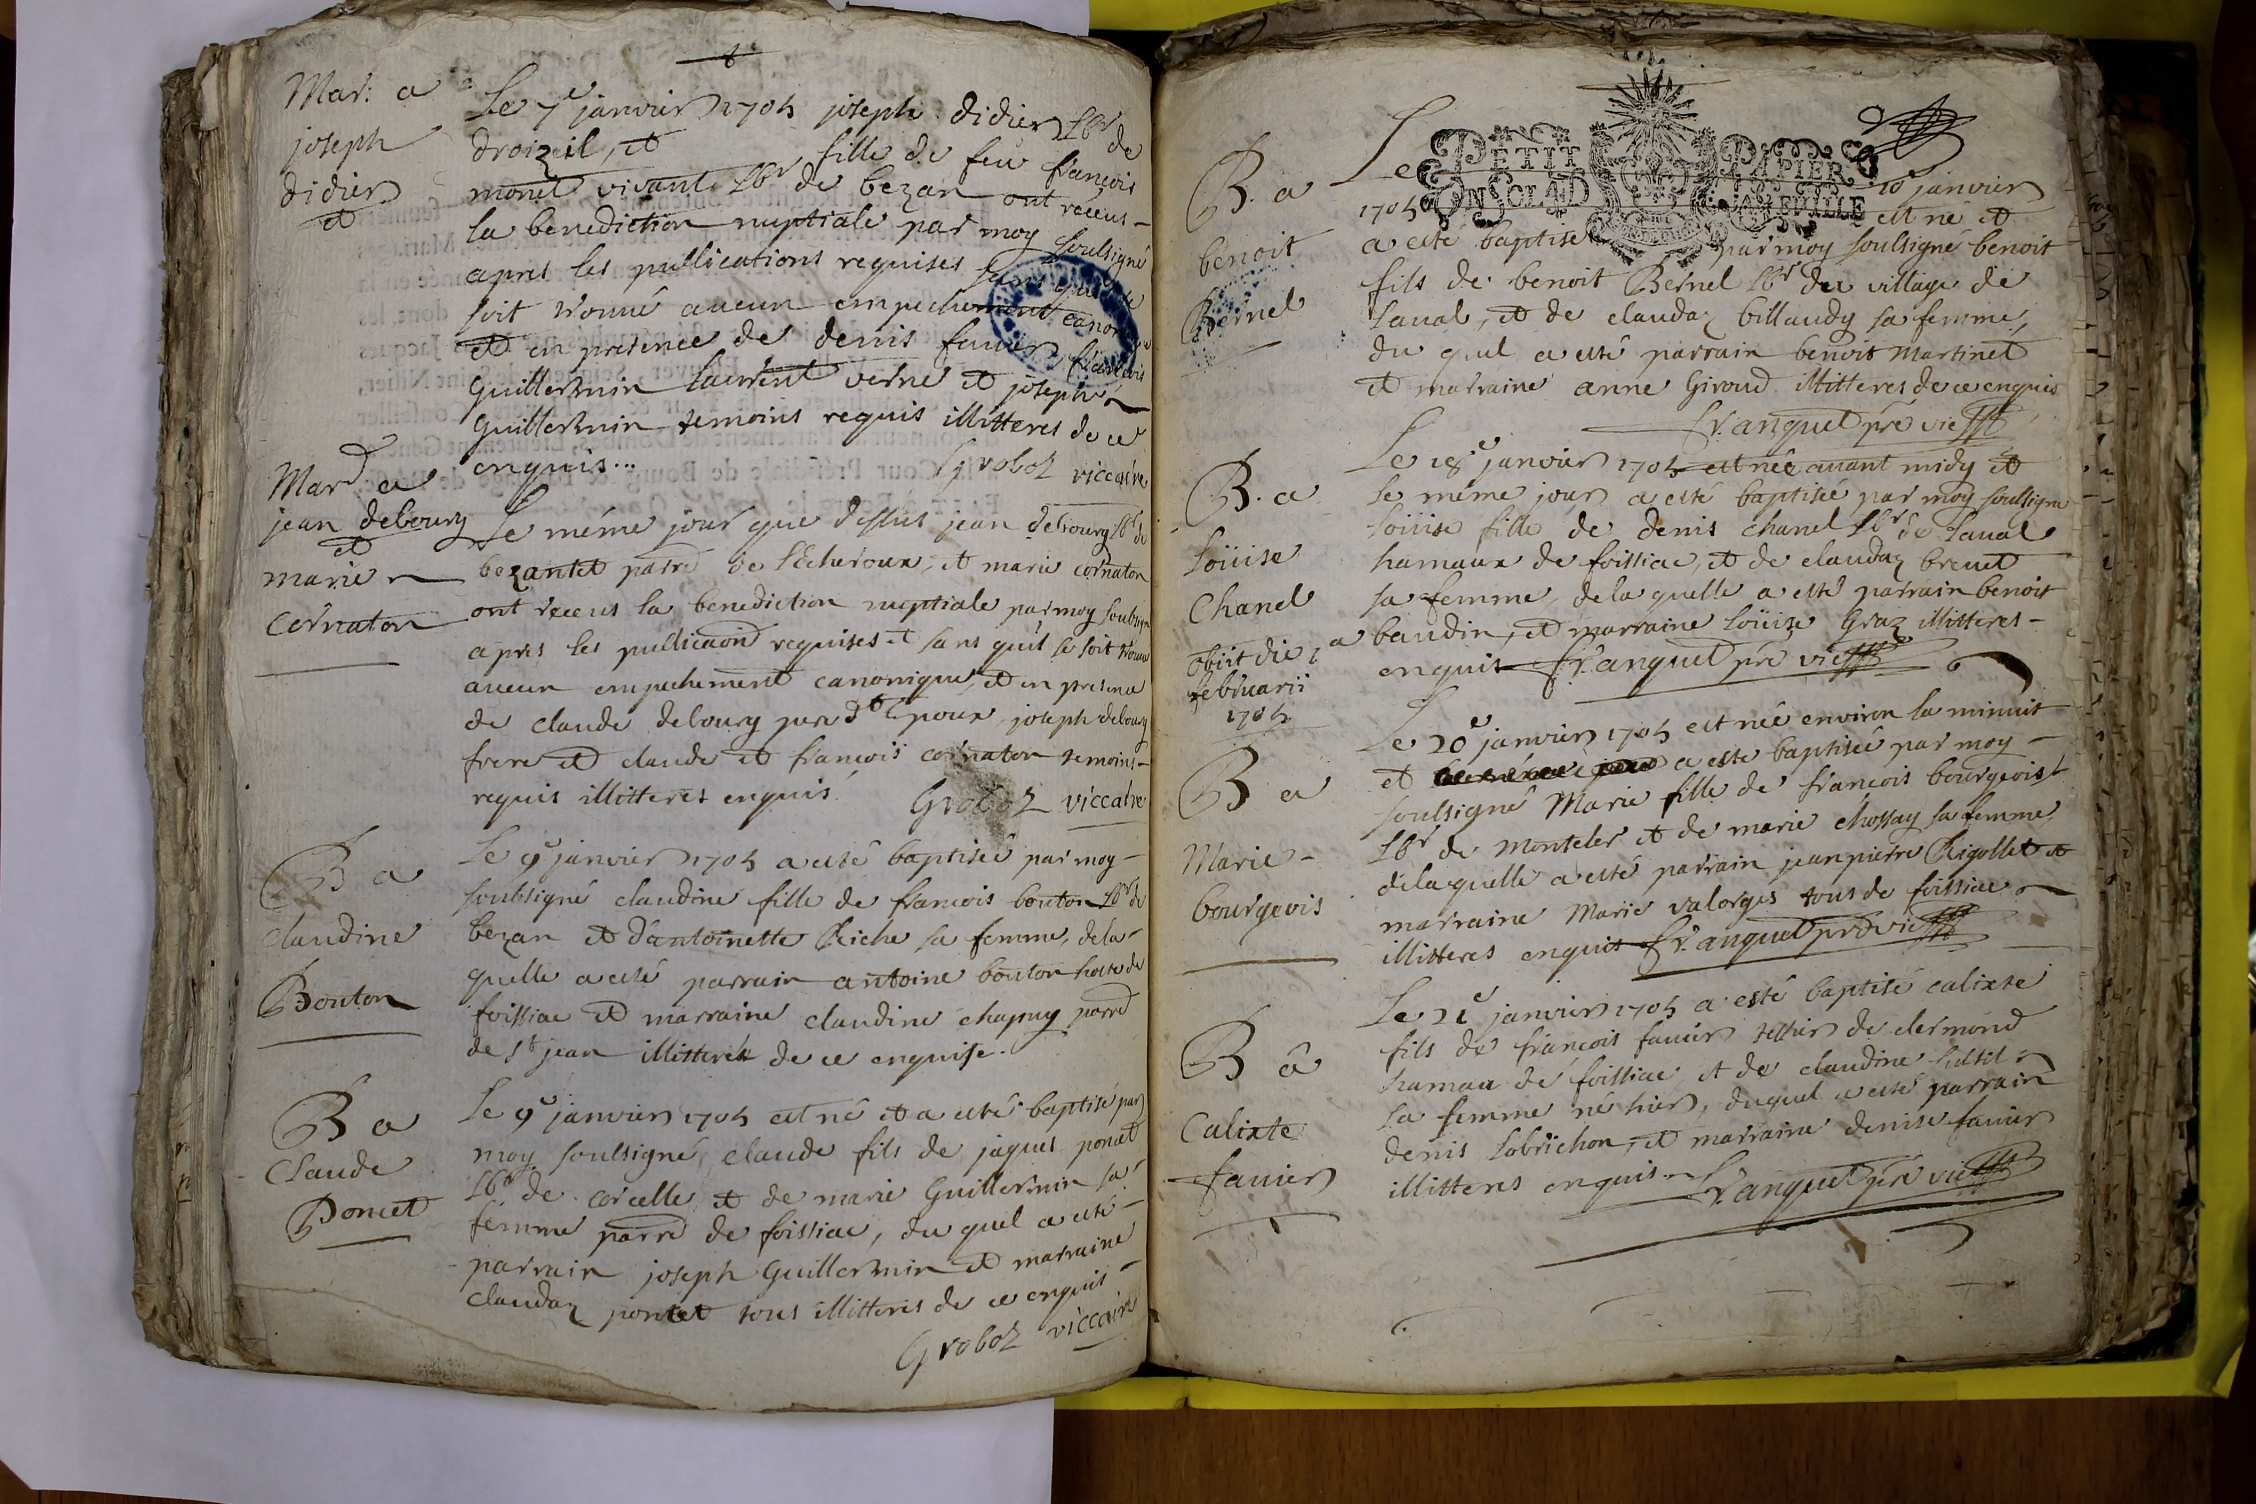 Mar: a
joseph
didier
et
Le 7e janvier 1705 joseph didier Lbr de
droizeil, et fille de feu françois
monet vivant Lbr de bezan ont receus
la benediction nuptiale par moy soulsigné
apres les publications requises sans quil se
soit trouué aucun empechement canonique
et en presence de denis fauier françois
Guillermin laurent verne et joseph
Guillermin temoins requis illitteres de ce
enquis... Groboz viccaire
Mard a
jean debourg
et
marie
Cornaton
Le méme jour que dessus jean debourg Lbr de
bezantet parre de lEcheroux, et marie cornaton
ont receus la benediction nuptiale par moy soubsigne
apres les publicaon requises et sans quil se soit trouue
aucun empechement canonique, et en presence
de claude debourg pere dt Epoux, joseph debourg
frere et claude et francois cornaton temoins
requis illitteres enquis. Groboz viccaire
B a
claudine
Bouton
Le 9e janvier 1705 a esté baptisée par moy
soubsigné claudine fille de francois bouton Lbr de
bezan et d'antoinette Riche sa femme, dela
quelle a esté parrain antoine bouton hoste de
foissiac et marraine claudine chapuy parre
de st jean illitterés de ce enquise.
B a
Claude
Poncet
Le 9e janvier 1705 est né et a esté baptisé par
moy soulsigné claude fils de jaques poncet
Lbr de corcelle, et de marie Guillermin sa
femme parre de foissiac, du quel a esté
parrain joseph Guillermin et marraine
Claudaz poncet tous illitteres de ce enquis
Groboz viccaire
PETIT PAPIER
UN SOL LA D FEVILLE
B. a
benoit
Bernel
Le 10e janvier
1705 est né et
a esté baptise par moy soulsigné benoit
fils de benoit Bernel Lbr du village de
Laual, et de claudaz billaudy sa femme,
du quel a esté parrain benoit Martinet
et marraine anne Giroud illitteres de ce enquis
Fr. anquet pre vic
B. a
Loüise
Chanel
obiit die 7a
februarii
1705
Le 18e janvier 1705 est née auant midy et
le méme jour a esté baptisée par moy soulsigne
Loüise fille de denis chanel Lbr de Laual
hamaux de foissiac, et de claudaz breuet
sa femme, dela quelle a esté parrain benoit
baudin, et marraine Loüize Graz illitteres
enquis Fr. anquet pre vic
B a
Marie
bourgeois
Le 20e janvier 1705 est née environ la minuit
et a este baptisée par moy
soulsigné Marie fille de françois bourgeois
Lbr de monteler et de marie chossay sa femme,
dela quelle a esté parrain jean pierre Rigollet et
marraine Marie valorges tous de foissiac
illitteres enquis Fr. anquet pre vic
B a
Calixte
fauier
Le 21e janvier 1705 a esté baptisé calixte
fils de francois fauier tessier de clermond
hamau de foissiac, et de claudine
sa femme né hier, duquel a esté parrain
denis Lobrichon, et marraine denise fauier
illitteres enquis Fr. anquet pre vic